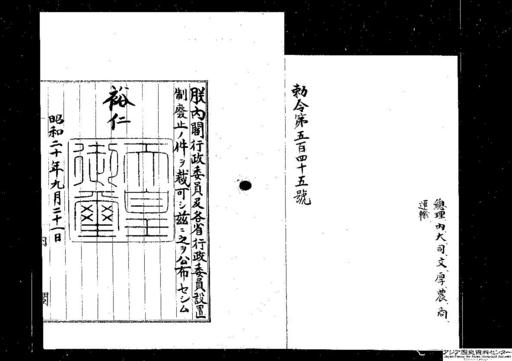 總理內大司文厚農商
運輸
勅令第五百四十五號
朕內閣行政委員及各省行政委員設置
制廢止ノ件ヲ裁可シ茲ニ之ヲ公布セシム
裕仁
天皇御璽
昭和二十年九月二十一日
內閣
アジア歴史資料センター